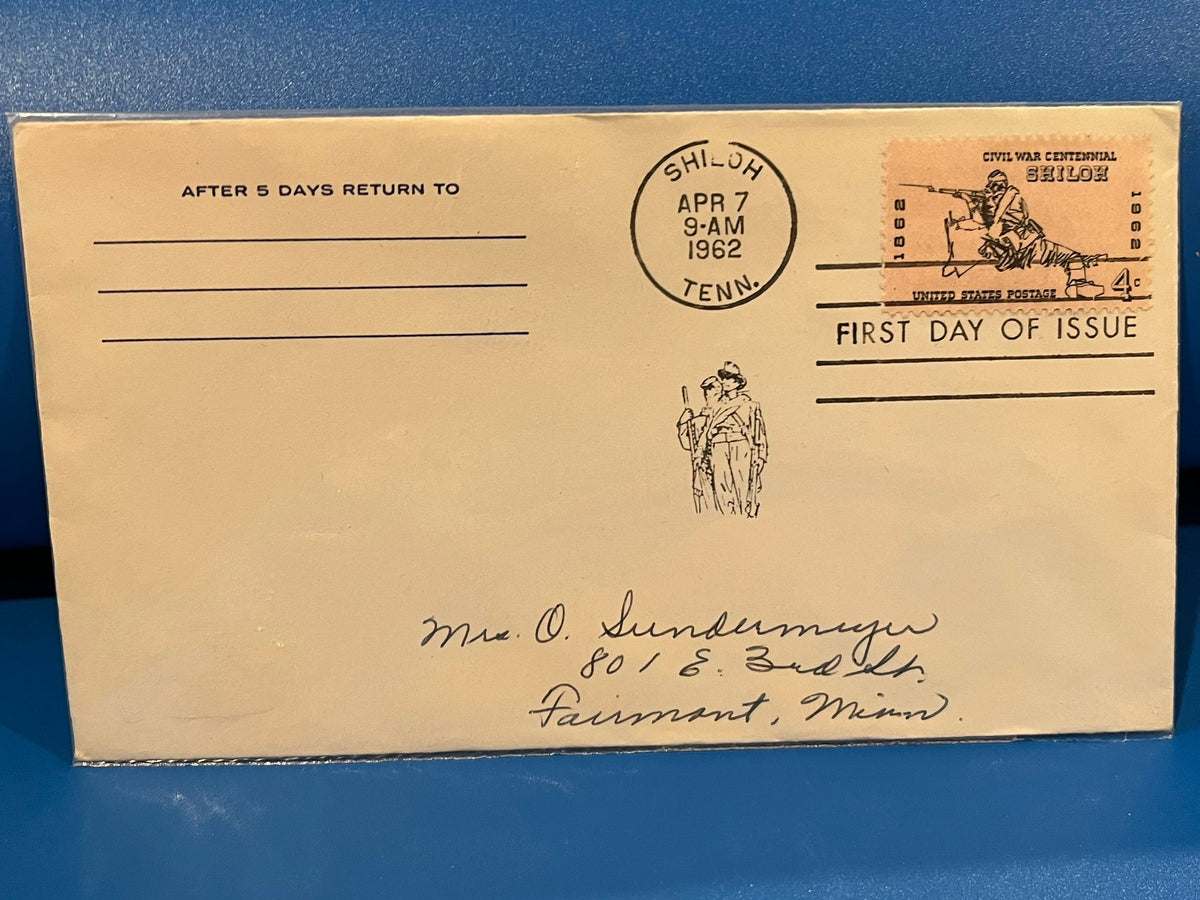 AFTER 5 DAYS RETURN TO
SHILOH
APR 7
9-AM
1962
TENN.
CIVIL WAR CENTENNIAL
SHILOH
1862
1962
UNITED STATES POSTAGE
4c
FIRST DAY OF ISSUE
Mrs. O. Sundermeyer
801 E. 3rd St.
Fairmont, Minn.